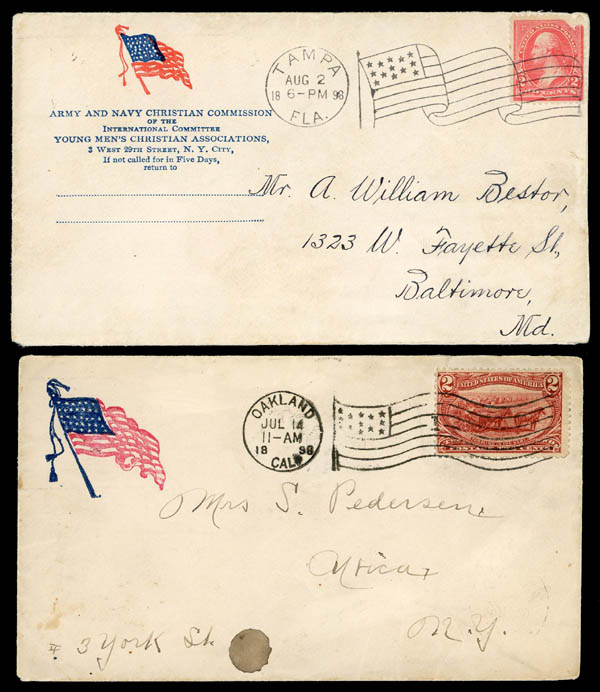 TAMPA
AUG 2
18 6-PM 98
FLA.
UNITED STATES OF AMERICA
2
CENTS
ARMY AND NAVY CHRISTIAN COMMISSION
OF THE
INTERNATIONAL COMMITTEE
YOUNG MEN'S CHRISTIAN ASSOCIATIONS,
3 WEST 29TH STREET, N. Y. CITY,
If not called for in Five Days,
return to
Mr. A. William Bestor,
1323 W. Fayette St,
Baltimore,
Md.
OAKLAND
JUL 14
11-AM
18 98
CAL
2 2
UNITED STATES OF AMERICA
Mrs S. Pedersen
Utica
N.Y.
# 3 York St.